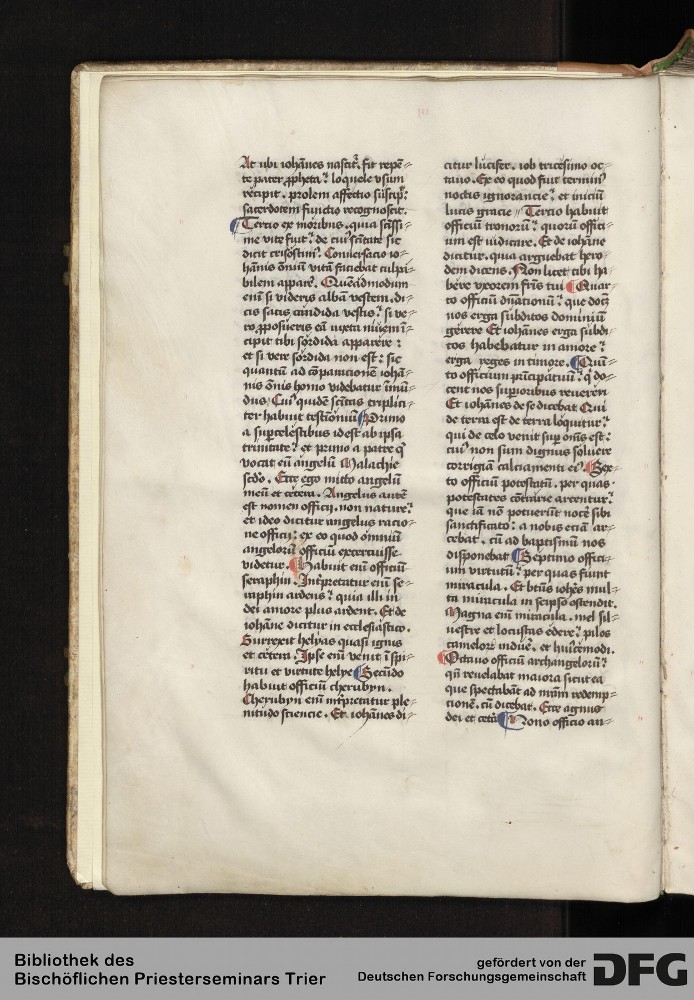 At ubi ioha̅nes nascit᷑. fit repe̅⸗
te pater ꝓpheta. loquele vsum
recipit. prolem affectio suscip᷑.
sacerdotem functio recognoscit.
Tercio ex moribus. quia sc̅issi⸗
me vite fuit. de cui᷒ sc̅itate sic
dicit crisostim᷒. Conuersacio io⸗
ha̅nis om̅iu̅ vita̅ faciebat culpa⸗
bilem appare᷑. Que̅admodum
eni̅ si videris alba̅ vestem. di⸗
cis satis candida vestis. si ve⸗
ro ꝓposueris ea̅ iuxta niue̅ i̅⸗
cipit tibi sordida apparere.
et si vere sordida non est. sic
quantu̅ ad co̅paracione̅ ioha̅⸗
nis om̅is homo videbatur i̅mu̅⸗
dus. Cui᷒ quide̅ sc̅itas triplici⸗
ter habuit testio̅niu̅ Primo
a sup̱celestibus id est ab ipsa
trinitate. et primo a patre q̇
vocat eu̅ angelu̅ Malachie
sc̅do. Ecce ego mitto angelu̅
meu̅ et cetera. Angelus aute̅
est nomen officij. non nature.
et ideo dicitur angelus racio⸗
ne officij. ex eo quod om̅niu̅
angeloru̅ officiu̅ exercuisse
videtur. Habuit eni̅ officiu̅
seraphin. Int̓pretatur eni̅ se⸗
raphin ardens. quia illi in
dei amore plus ardent. Et de
ioha̅ne dicitur in ecclesiastico.
Surrexit helyas quasi ignis
et cetera. Ipse eni̅ venit i̅ spi⸗
ritu et virtute helye Secu̅do
habuit officiu̅ cherubyn.
Cherubyn eni̅ int̓pretatur ple⸗
nitudo sciencie. Et ioha̅nes di⸗
citur lucifer. iob tricesimo oc⸗
tauo. Ex eo quod fuit termin᷒
noctis ignorancie. et iniciu̅
lucis gracie Tercio habuit
officiu̅ tronoru̅. quoru̅ offici⸗
um est iudicare. Et de ioha̅ne
dicitur. quia arguebat hero⸗
dem dicens. Non licet tibi ha⸗
bere vxorem fr̅is tui Quar⸗
to officiu̅ dn̅ationu̅. que doce̅t
nos erga subditos dominiu̅
gerere Et ioha̅nes erga subdi⸗
tos habebatur in amore.
erga reges in timore. Qui̅⸗
to officium principatuu̅. q̇ do⸗
cent nos sup̱ioribus reueren̅
Et ioha̅nes de se dicebat Qui
de terra est de terra loquitur.
qui de celo venit sup̱ om̅s est.
cui᷒ non sum dignus soluere
corrigia̅ calciamenti ei᷒. Sex⸗
to officiu̅ potestatu̅. per quas
potestates co̅trarie arcentur.
que ia̅ no̅ potueru̅t noce᷑ sibi
sanctificato. a nobis ecia̅ ar⸗
cebat. cu̅ ad baptismu̅ nos
disponebat Septimo offici⸗
um virtutu̅. per quas fiunt
miracula. Et bt̅us ioh̅es mul⸗
ta miracula in seipso ostendit.
Magna eni̅ miracula. mel sil⸗
uestre et locustas edere. pilos
cameloru̅ indue᷑. et hui᷒cemodi.
Octauo officiu̅ archangeloru̅.
qn̅ reuelabat maiora sicut ea
que spectaba̅t ad nr̅am redemp⸗
cione̅. cu̅ dicebat. Ecce agnus
dei et cet̓a Nono officio an⸗
Bibliothek des
Bischöflichen Priesterseminars Trier
gefördert von der
Deutschen Forschungsgemeinschaft
DFG